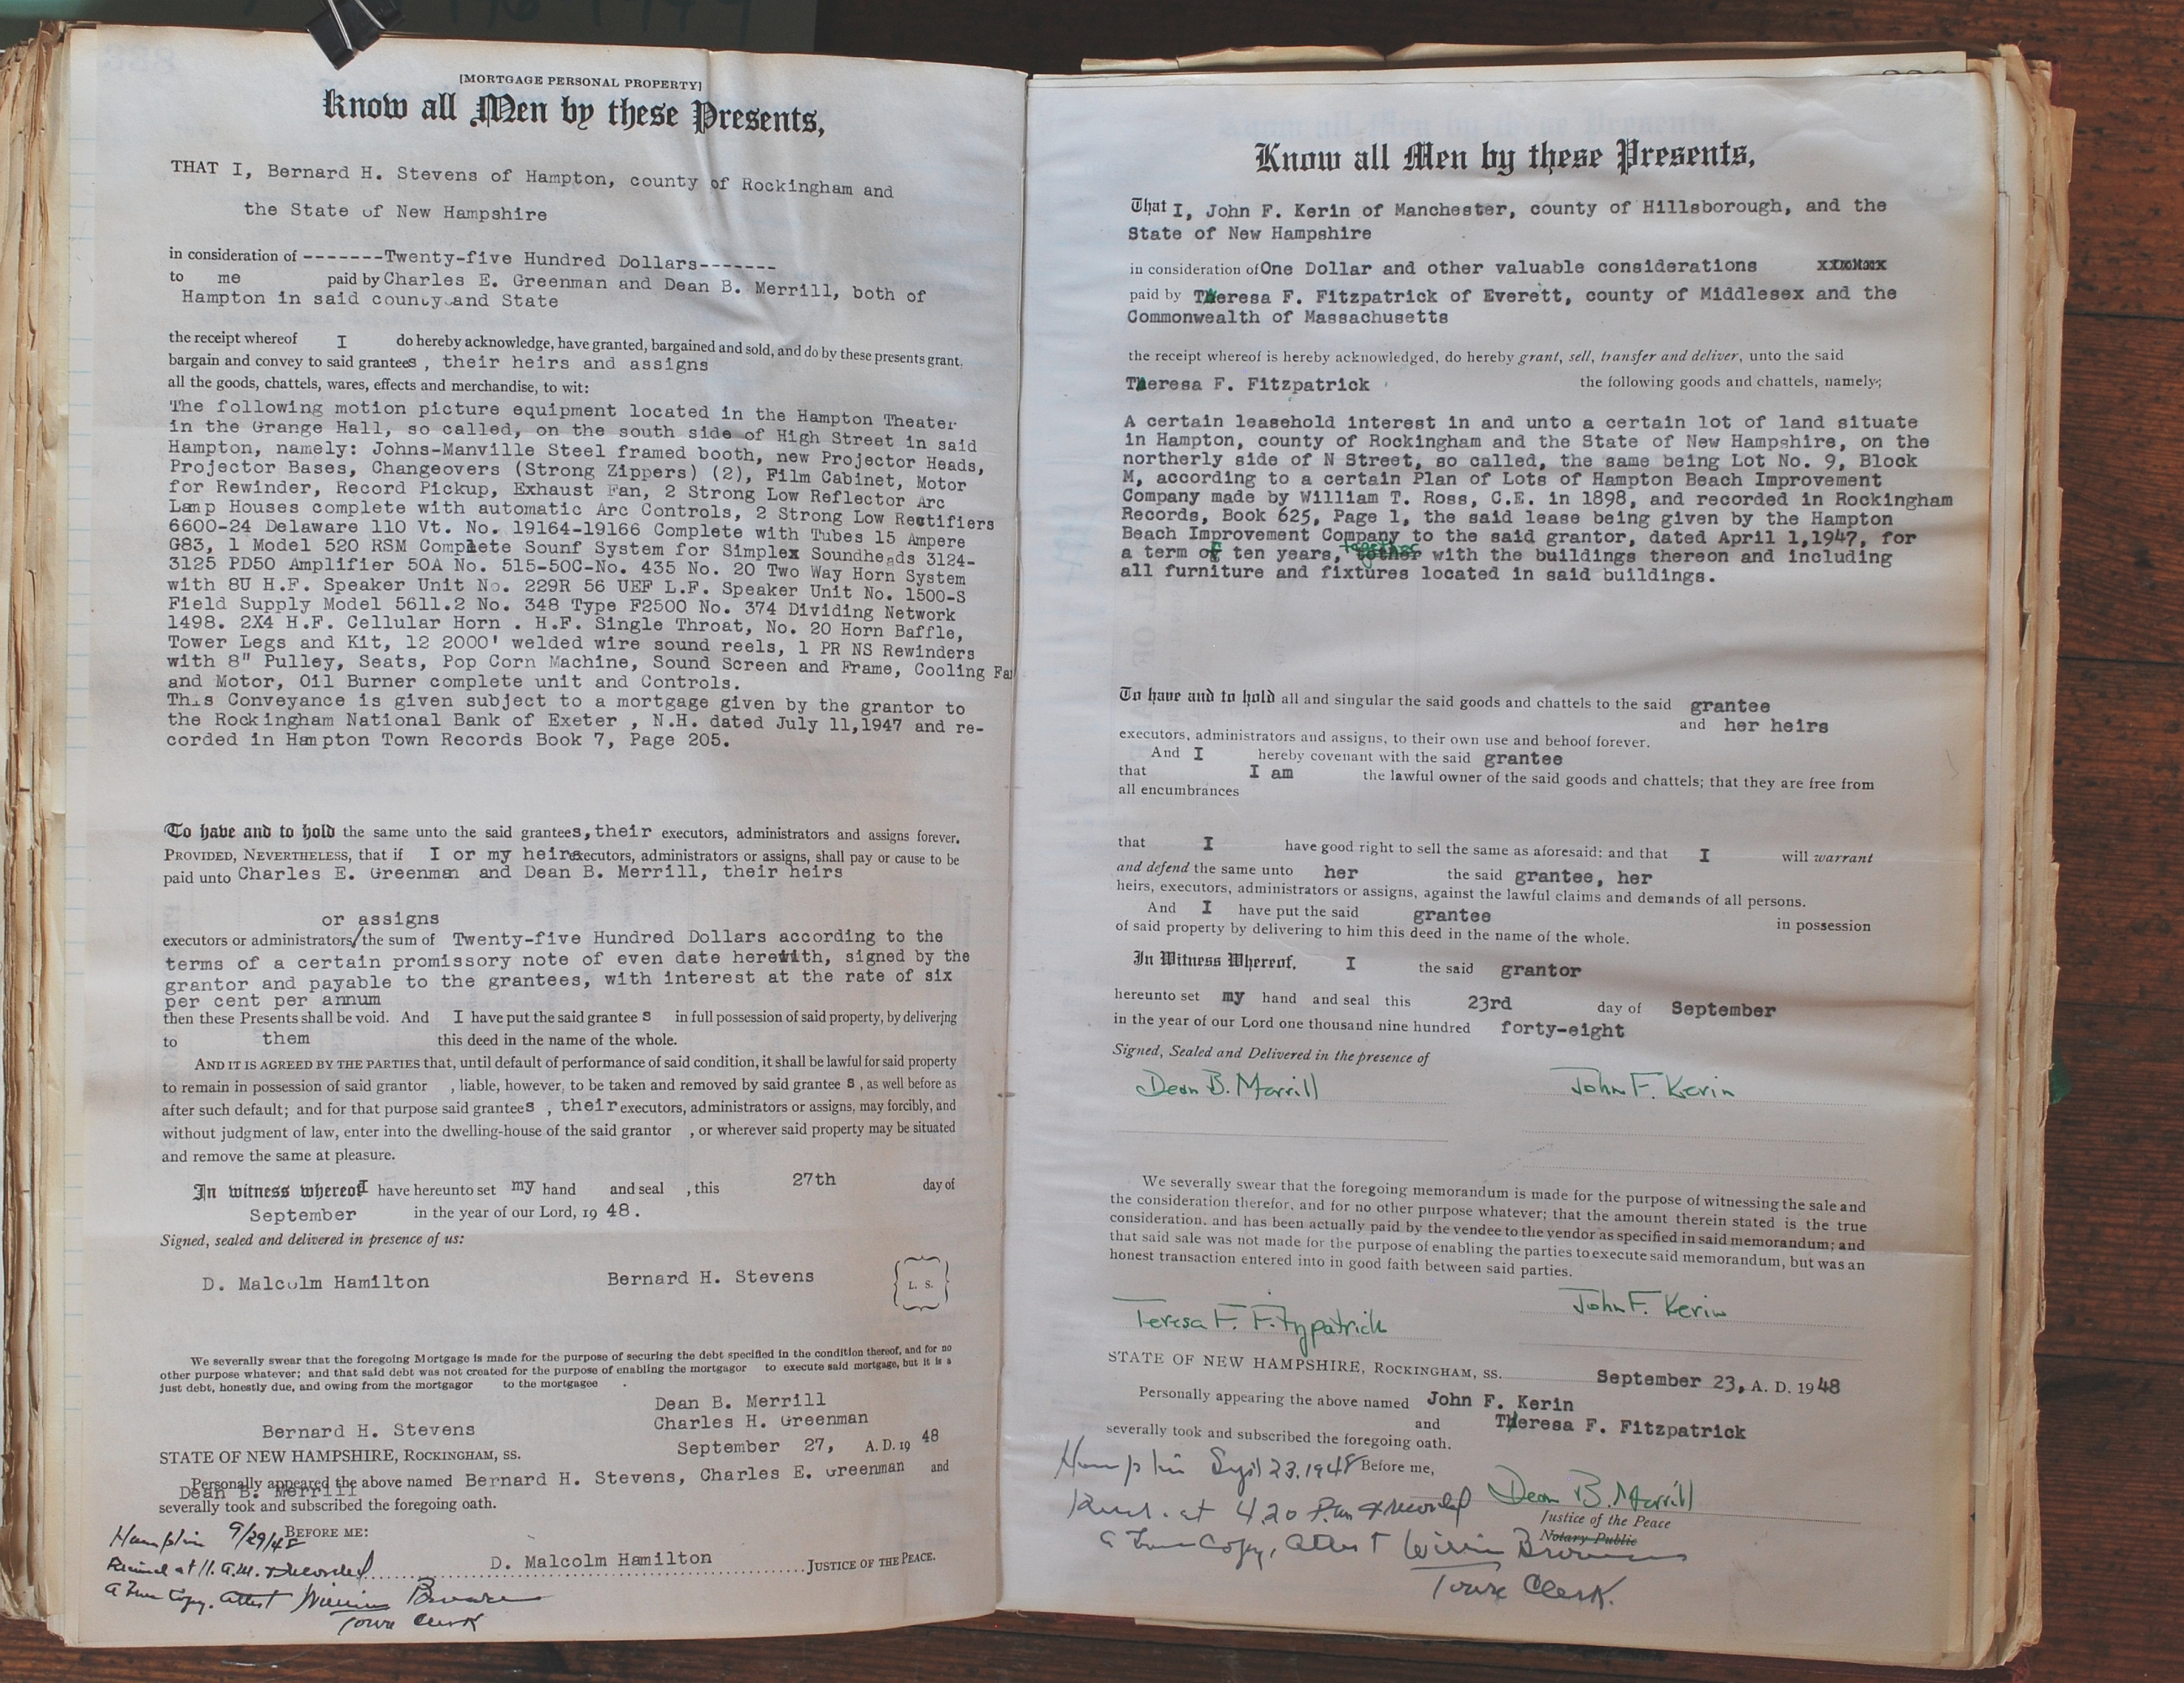 [MORTGAGE PERSONAL PROPERTY]
Know all Men by these Presents,
THAT I, Bernard H. Stevens of Hampton, county of Rockingham and
the State of New Hampshire
in consideration of -------Twenty-five Hundred Dollars-------
to me paid by Charles E. Greenman and Dean B. Merrill, both of
Hampton in said county and State
the receipt whereof I do hereby acknowledge, have granted, bargained and sold, and do by these presents grant,
bargain and convey to said grantees, their heirs and assigns
all the goods, chattels, wares, effects and merchandise, to wit:
The following motion picture equipment located in the Hampton Theater
in the Grange Hall, so called, on the south side of High Street in said
Hampton, namely: Johns-Manville Steel framed booth, new Projector Heads,
Projector Bases, Changeovers (Strong Zippers) (2), Film Cabinet, Motor
for Rewinder, Record Pickup, Exhaust Fan, 2 Strong Low Reflector Arc
Lamp Houses complete with automatic Arc Controls, 2 Strong Low Rectifiers
6600-24 Delaware 110 Vt. No. 19164-19166 Complete with Tubes 15 Ampere
G83, 1 Model 520 RSM Complete Sounf System for Simplex Soundheads 3124-
3125 PD50 Amplifier 50A No. 515-50C-No. 435 No. 20 Two Way Horn System
with 8U H.F. Speaker Unit No. 229R 56 UEF L.F. Speaker Unit No. 1500-S
Field Supply Model 5611.2 No. 348 Type F2500 No. 374 Dividing Network
1498. 2X4 H.F. Cellular Horn . H.F. Single Throat, No. 20 Horn Baffle,
Tower Legs and Kit, 12 2000' welded wire sound reels, 1 PR NS Rewinders
with 8" Pulley, Seats, Pop Corn Machine, Sound Screen and Frame, Cooling Fan
and Motor, Oil Burner complete unit and Controls.
This Conveyance is given subject to a mortgage given by the grantor to
the Rockingham National Bank of Exeter , N.H. dated July 11,1947 and re-
corded in Hampton Town Records Book 7, Page 205.
To have and to hold the same unto the said grantees, their executors, administrators and assigns forever.
PROVIDED, NEVERTHELESS, that if I or my heirs executors, administrators or assigns, shall pay or cause to be
paid unto Charles E. Greenman and Dean B. Merrill, their heirs
or assigns
executors or administrators/ the sum of Twenty-five Hundred Dollars according to the
terms of a certain promissory note of even date herewith, signed by the
grantor and payable to the grantees, with interest at the rate of six
per cent per annum
then these Presents shall be void. And I have put the said grantee s in full possession of said property, by delivering
to them this deed in the name of the whole.
AND IT IS AGREED BY THE PARTIES that, until default of performance of said condition, it shall be lawful for said property
to remain in possession of said grantor , liable, however, to be taken and removed by said grantee s , as well before as
after such default; and for that purpose said grantees , their executors, administrators or assigns, may forcibly, and
without judgment of law, enter into the dwelling-house of the said grantor , or wherever said property may be situated
and remove the same at pleasure.
In witness whereof I have hereunto set my hand and seal , this 27th day of
September in the year of our Lord, 19 48.
Signed, sealed and delivered in presence of us:
D. Malcolm Hamilton Bernard H. Stevens L. S.
We severally swear that the foregoing Mortgage is made for the purpose of securing the debt specified in the condition thereof, and for no
other purpose whatever; and that said debt was not created for the purpose of enabling the mortgagor to execute said mortgage, but it is a
just debt, honestly due, and owing from the mortgagor to the mortgagee .
Dean B. Merrill
Bernard H. Stevens Charles H. Greenman
STATE OF NEW HAMPSHIRE, ROCKINGHAM, SS. September 27, A. D. 19 48
Personally appeared the above named Bernard H. Stevens, Charles E. Greenman and
Dean B. Merrill
severally took and subscribed the foregoing oath.
Hampton 9/29/48 BEFORE ME:
Received at 11. A.M. & Recorded D. Malcolm Hamilton JUSTICE OF THE PEACE.
A True Copy. Attest William Brown
Town Clerk
Know all Men by these Presents,
That I, John F. Kerin of Manchester, county of Hillsborough, and the
State of New Hampshire
in consideration of One Dollar and other valuable considerations
paid by Theresa F. Fitzpatrick of Everett, county of Middlesex and the
Commonwealth of Massachusetts
the receipt whereof is hereby acknowledged, do hereby grant, sell, transfer and deliver, unto the said
Theresa F. Fitzpatrick the following goods and chattels, namely;
A certain leasehold interest in and unto a certain lot of land situate
in Hampton, county of Rockingham and the State of New Hampshire, on the
northerly side of N Street, so called, the same being Lot No. 9, Block
M, according to a certain Plan of Lots of Hampton Beach Improvement
Company made by William T. Ross, C.E. in 1898, and recorded in Rockingham
Records, Book 625, Page 1, the said lease being given by the Hampton
Beach Improvement Company to the said grantor, dated April 1,1947, for
a term of ten years, together tother with the buildings thereon and including
all furniture and fixtures located in said buildings.
To have and to hold all and singular the said goods and chattels to the said grantee
and her heirs
executors, administrators and assigns, to their own use and behoof forever.
And I hereby covenant with the said grantee
that I am the lawful owner of the said goods and chattels; that they are free from
all encumbrances
that I have good right to sell the same as aforesaid: and that I will warrant
and defend the same unto her the said grantee, her
heirs, executors, administrators or assigns, against the lawful claims and demands of all persons.
And I have put the said grantee in possession
of said property by delivering to him this deed in the name of the whole.
In Witness Whereof, I the said grantor
hereunto set my hand and seal this 23rd day of September
in the year of our Lord one thousand nine hundred forty-eight
Signed, Sealed and Delivered in the presence of
Dean B. Merrill John F. Kerin
We severally swear that the foregoing memorandum is made for the purpose of witnessing the sale and
the consideration therefor, and for no other purpose whatever; that the amount therein stated is the true
consideration, and has been actually paid by the vendee to the vendor as specified in said memorandum; and
that said sale was not made for the purpose of enabling the parties to execute said memorandum, but was an
honest transaction entered into in good faith between said parties.
Teresa F. Fitzpatrick John F. Kerin
STATE OF NEW HAMPSHIRE, ROCKINGHAM, SS. September 23, A. D. 19 48
Personally appearing the above named John F. Kerin
and Theresa F. Fitzpatrick
severally took and subscribed the foregoing oath.
Hampton Sept 23, 1948 Before me,
Recd. at 4.20 P.m & recorded Dean B. Merrill
Justice of the Peace
Notary Public
A True Copy, Attest William Brown
Town Clerk.